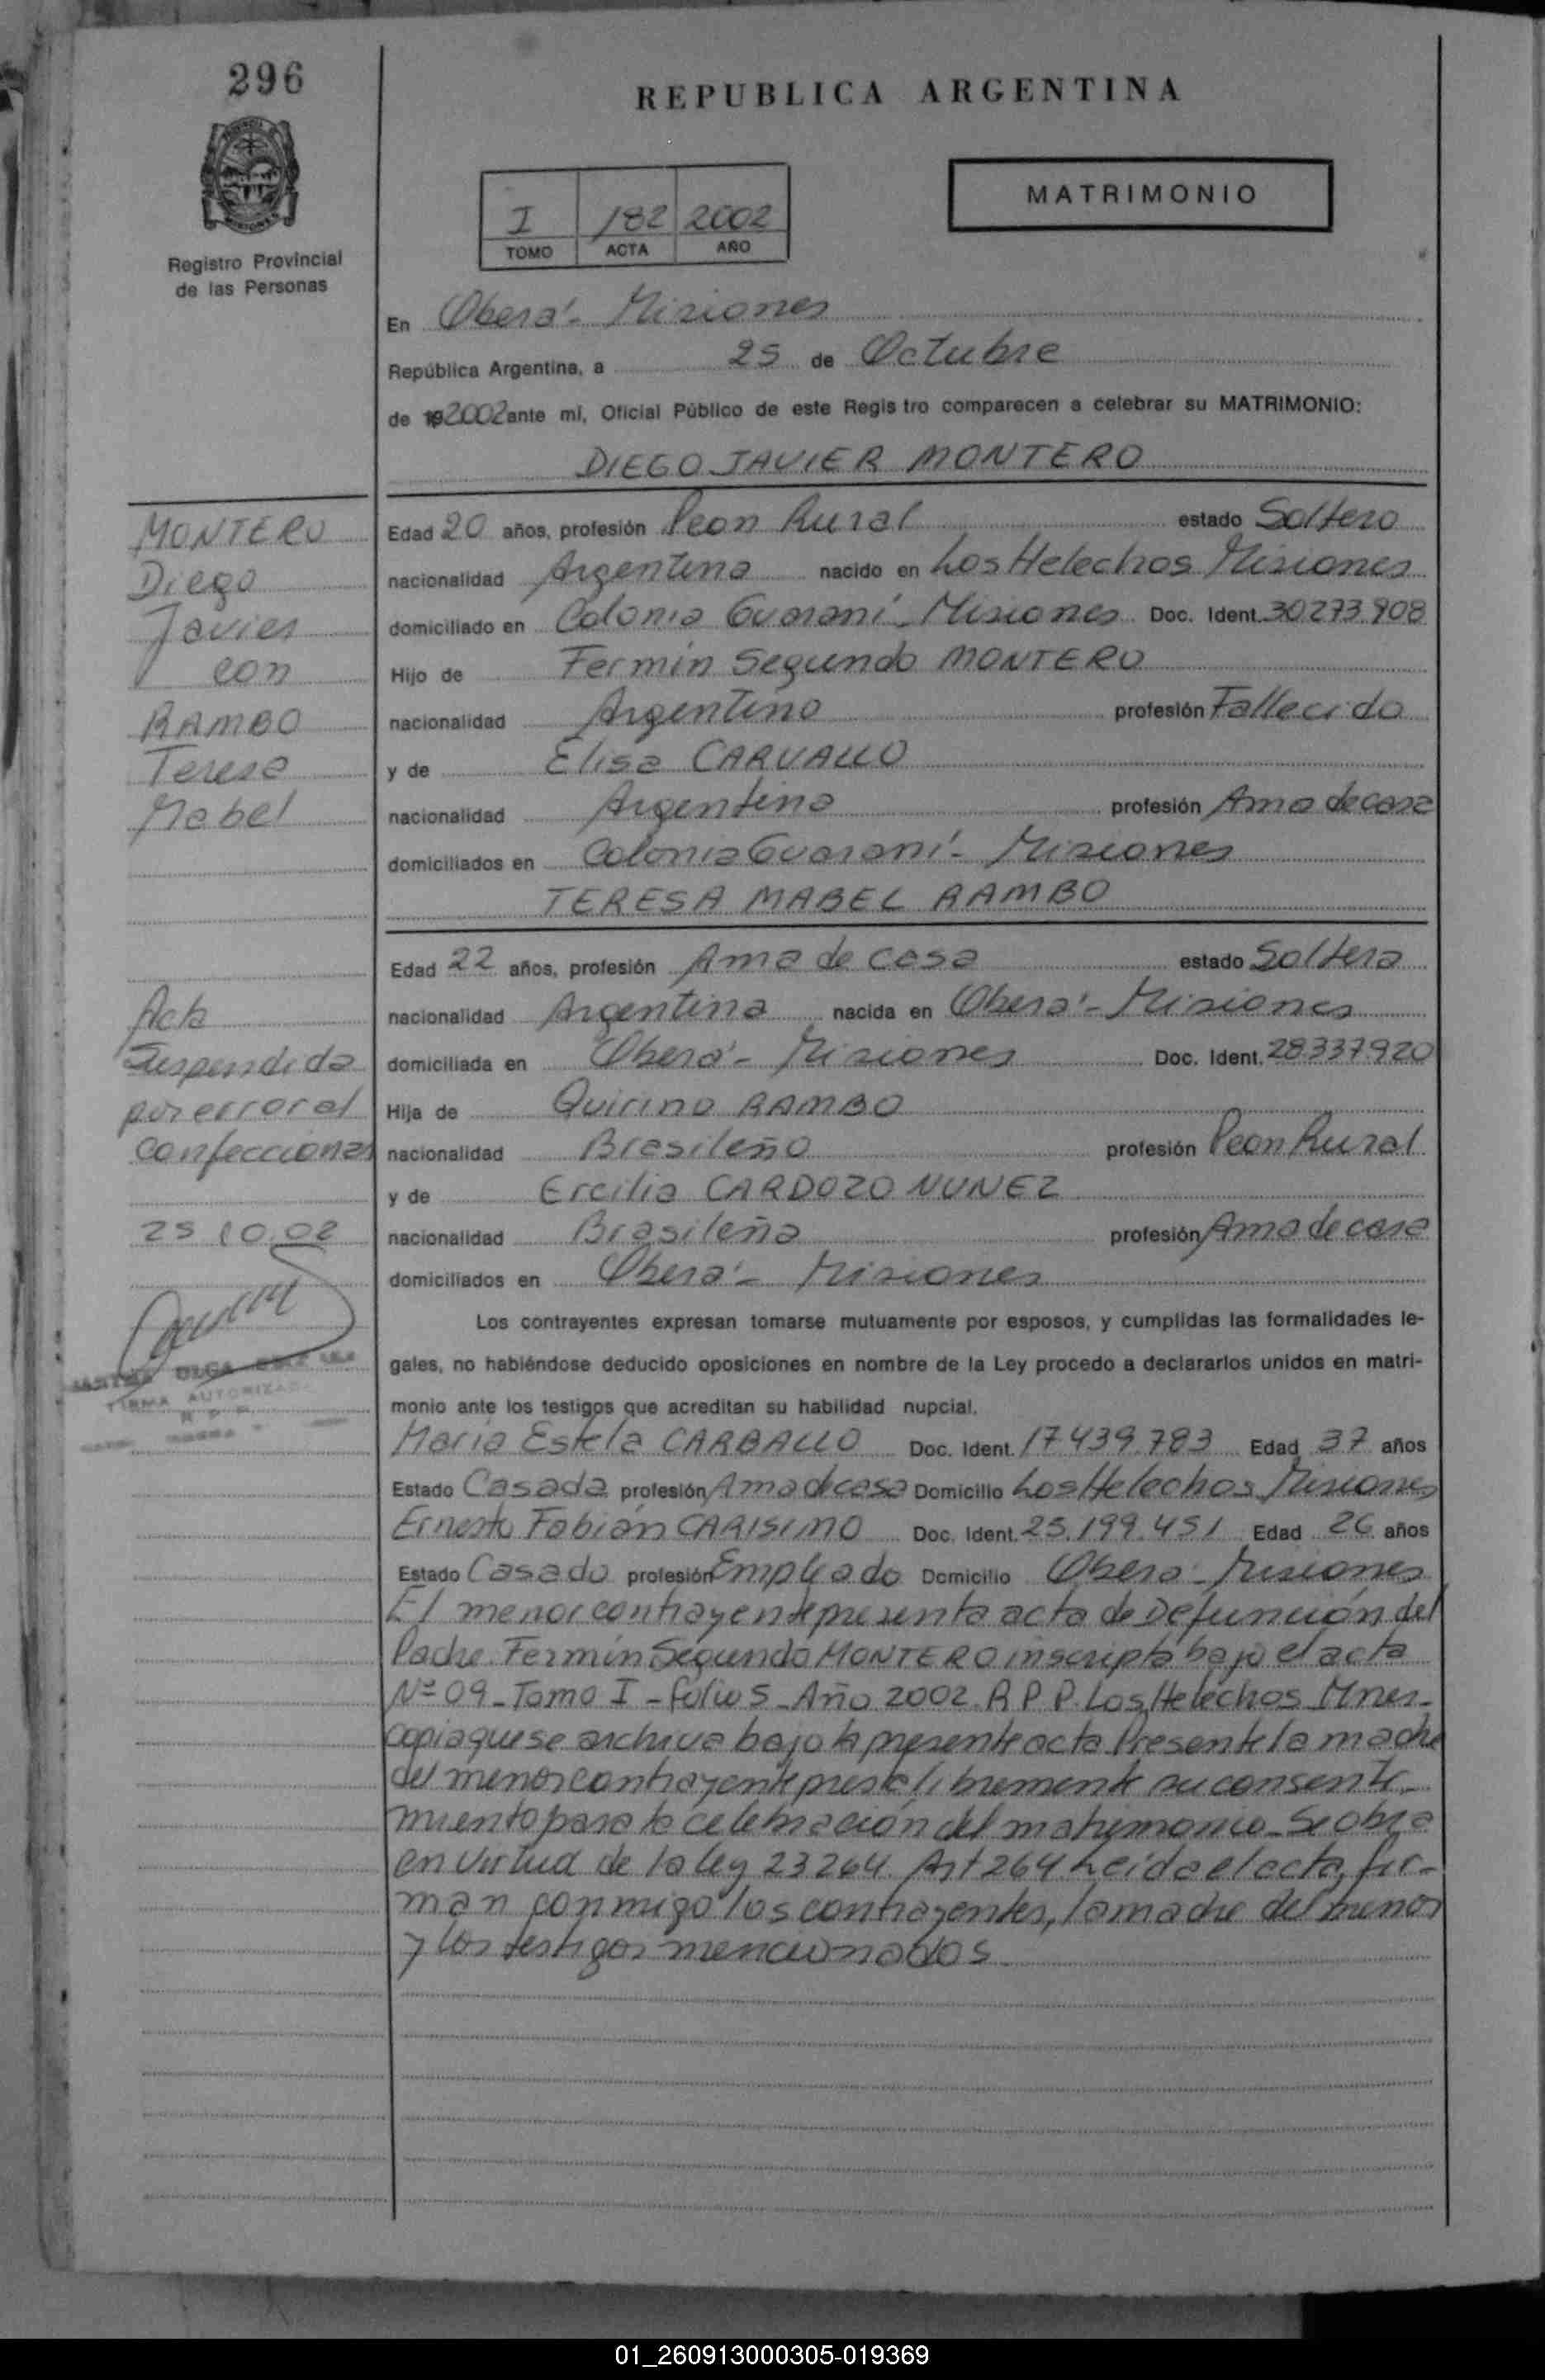 296
REPUBLICA ARGENTINA
MATRIMONIO
I 182 2002
TOMO ACTA AÑO
Registro Provincial
de las Personas
En Oberá - Misiones
República Argentina, a 25 de Octubre
de 192002 ante mí, Oficial Público de este Regis tro comparecen a celebrar su MATRIMONIO:
DIEGO JAVIER MONTERO
MONTERO
Diego
Javier
con
RAMBO
Teresa
Mabel
Edad 20 años, profesión Peon Rural estado Soltero
nacionalidad Argentina nacido en Los Helechos Misiones
domiciliado en Colonia Guaraní - Misiones Doc. Ident. 30.273.908
Hijo de Fermín Segundo MONTERO
nacionalidad Argentino profesión Fallecido
y de Elisa CARVALLO
nacionalidad Argentina profesión Ama de casa
domiciliados en Colonia Guaraní - Misiones
TERESA MABEL RAMBO
Edad 22 años, profesión Ama de casa estado Soltera
nacionalidad Argentina nacida en Oberá - Misiones
domiciliada en Oberá - Misiones Doc. Ident. 28.337.920
Hija de Quirino RAMBO
nacionalidad Brasileño profesión Peon Rural
y de Ercilia CARDOZO NUNEZ
nacionalidad Brasileña profesión Ama de casa
domiciliados en Oberá - Misiones
Acta
Suspendida
por error al
confeccionar
25 10.02
OLGA
FIRMA AUTORIZADA
Los contrayentes expresan tomarse mutuamente por esposos, y cumplidas las formalidades le-
gales, no habiéndose deducido oposiciones en nombre de la Ley procedo a declararlos unidos en matri-
monio ante los testigos que acreditan su habilidad nupcial.
María Estela CARBALLO Doc. Ident. 17.439.783 Edad 37 años
Estado Casada profesión Ama de casa Domicilio Los Helechos Misiones
Ernesto Fabián CARISIMO Doc. Ident. 25.199.451 Edad 26 años
Estado Casado profesión Empleado Domicilio Oberá - Misiones
El menor contrayente presenta acta de Defunción del
Padre Fermín Segundo MONTERO inscripta bajo el acta
Nº 09 - Tomo I - folio 5 - Año 2002. R P P. Los Helechos Mnes -
copia que se archiva bajo la presente acta Presente la madre
del menor contrayente presta libremente su consenti-
miento para la celebración del matrimonio - Se obra
en virtud de la ley 23264 Art 264 Leída el acta, fir-
man conmigo los contrayentes, la madre del menor
y los testigos mencionados
01_260913000305-019369